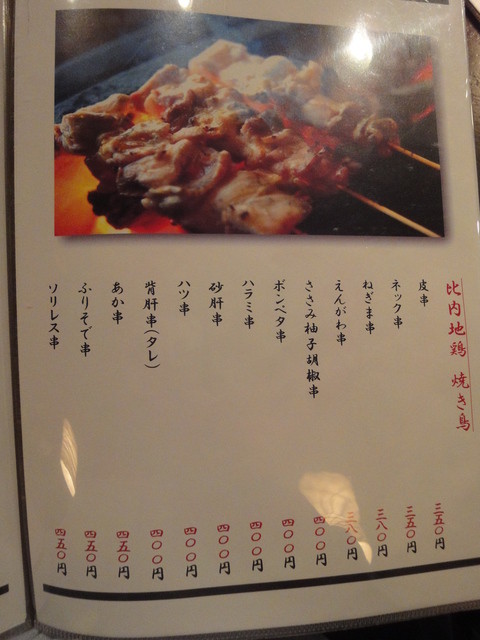 比内地鶏 焼き鳥
皮串 三五〇円
ネック串 三五〇円
ねぎま串 三八〇円
えんがわ串 三八〇円
ささみ柚子胡椒串 四〇〇円
ボンペタ串 四〇〇円
ハラミ串 四〇〇円
砂肝串 四〇〇円
ハツ串 四〇〇円
背肝串(タレ) 四〇〇円
あか串 四五〇円
ふりそで串 四五〇円
ソリレス串 四五〇円